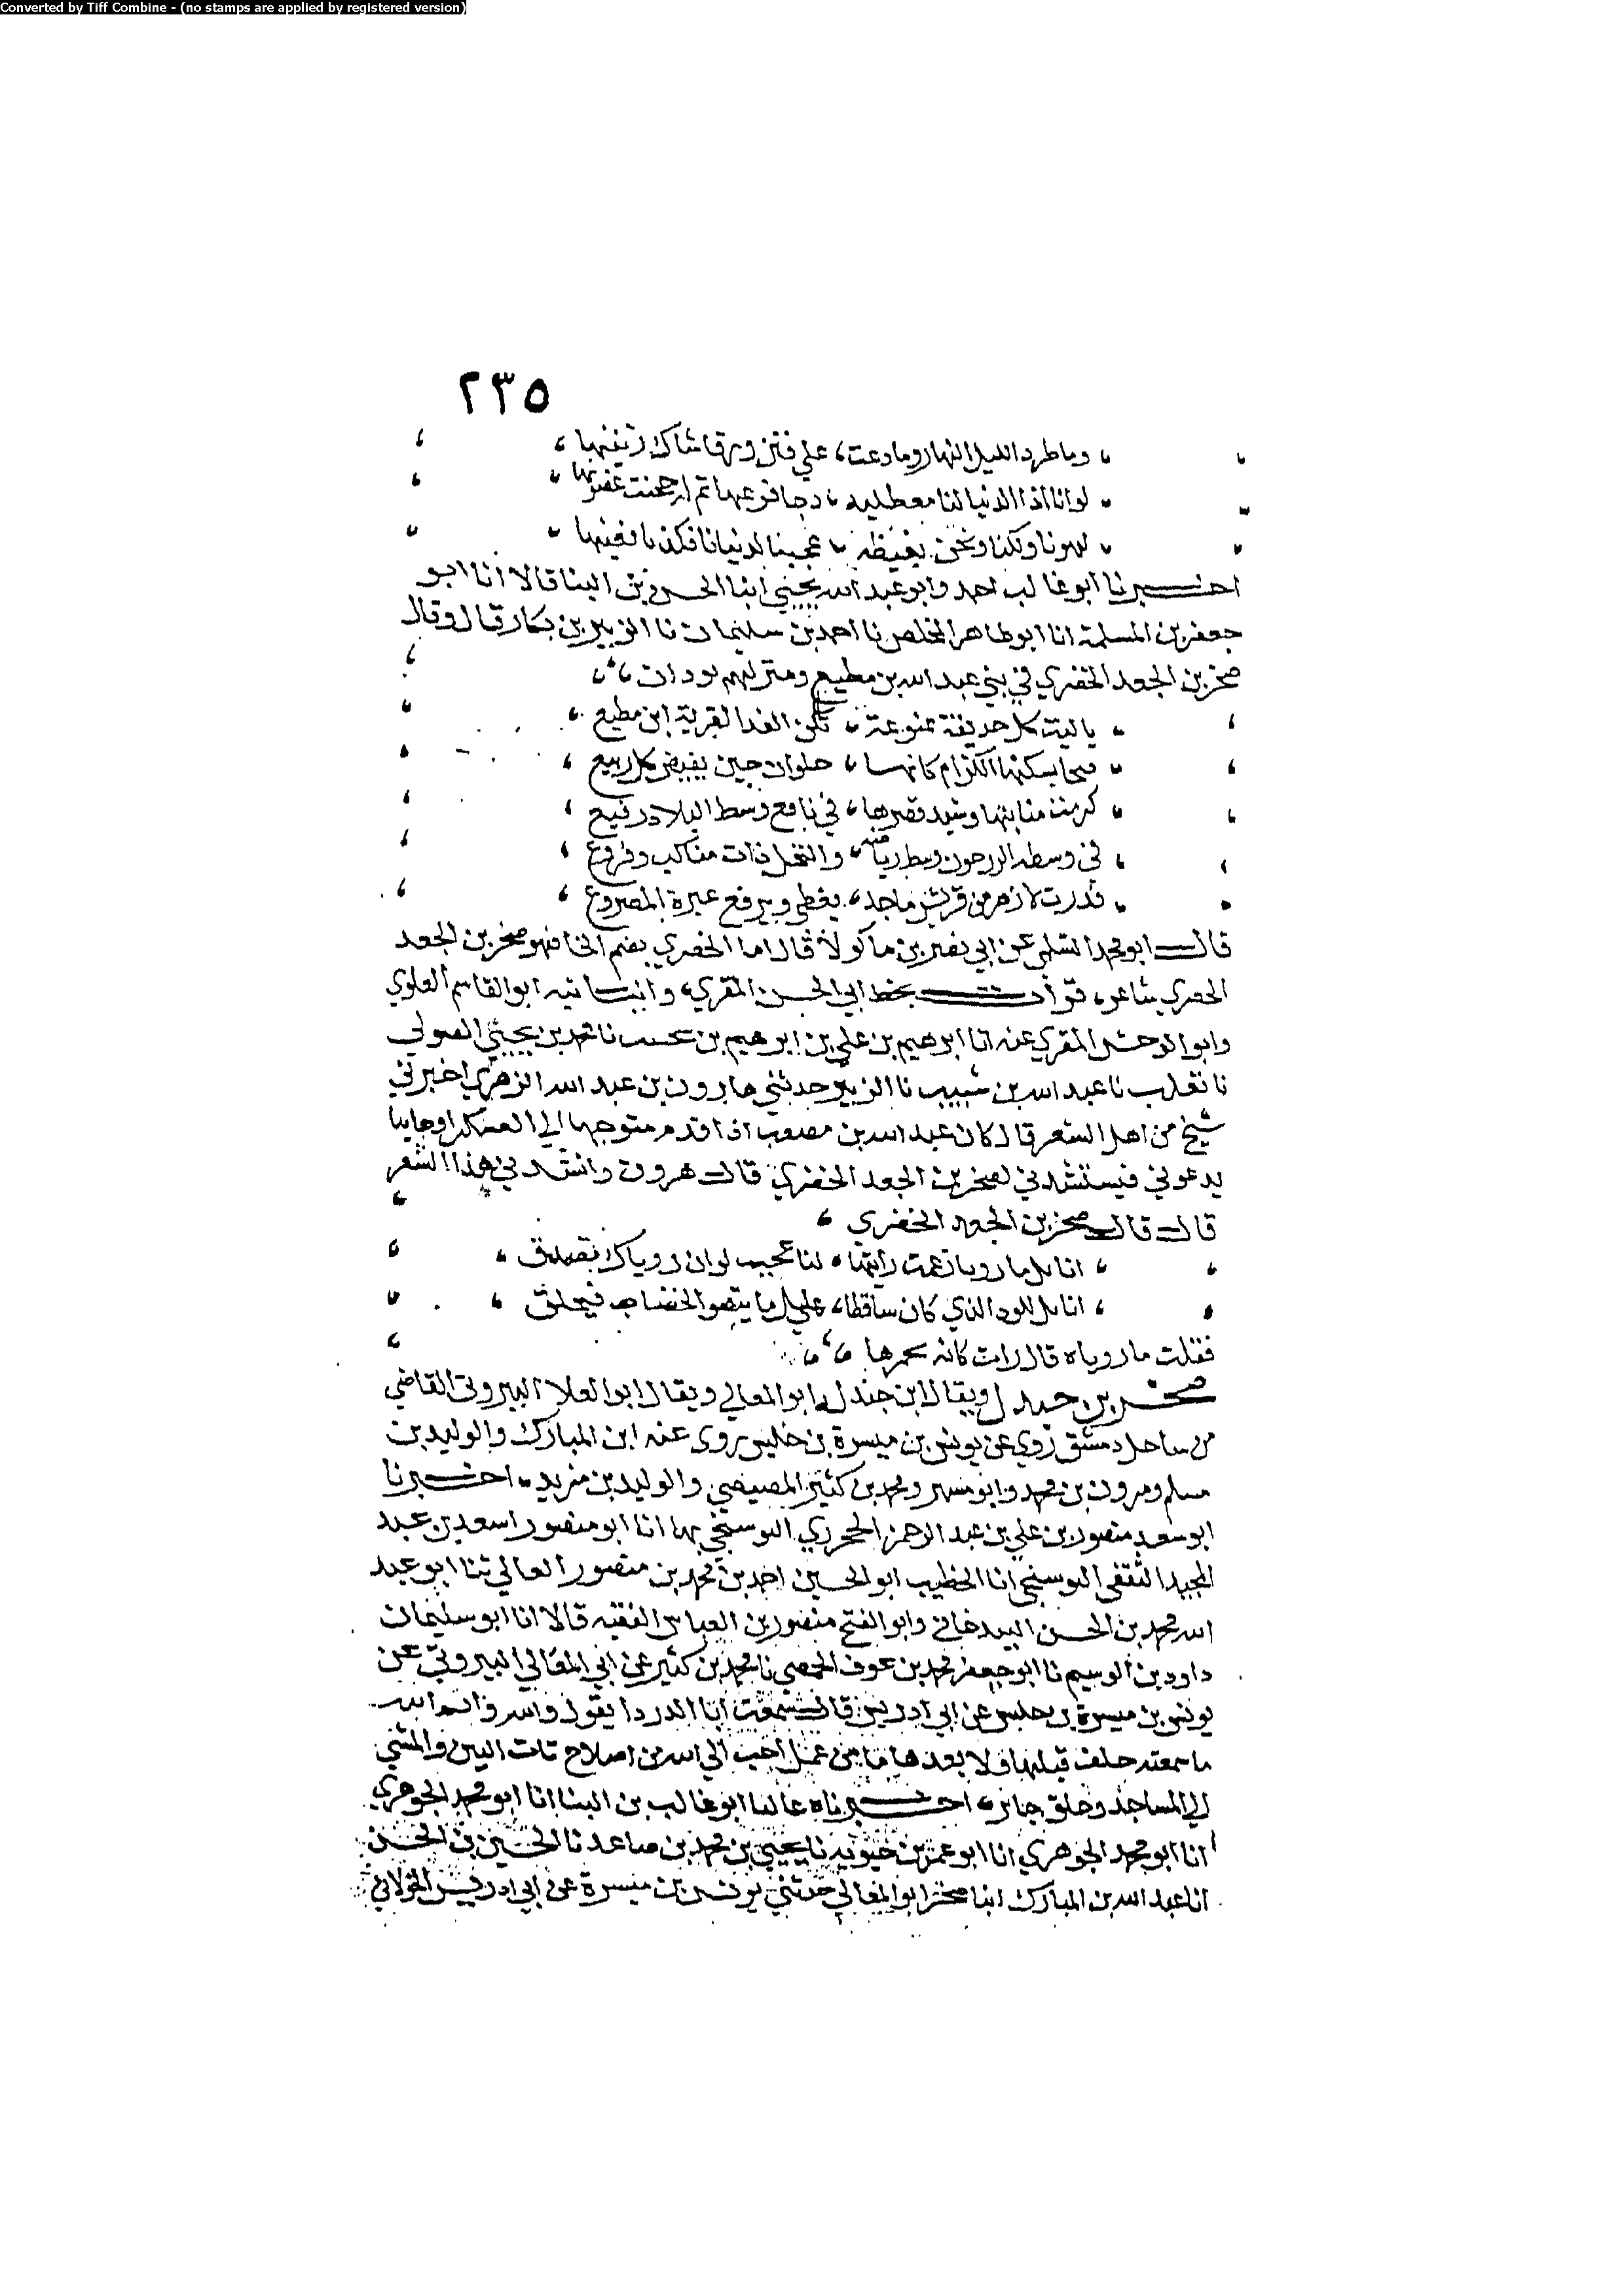 Converted by Tiff Combine - (no stamps are applied by registered version)
٢٣٥
وما طرد الليل النهار وما دعت، علي فنن ورقا شاك
لوانا اذا الدنيا لنا معطليه، دجا فرعها ثم ارجحنت غصونها
لهونا ولكنا ونحن بغبطه، عجبنا لدنيانا فكدنا نعينها
اخبرنا ابو غالب احمد وابو عبد الله يحيي ابنا الحسن بن البنا قالا انا ابو
جعفر بن المسلمة انا ابو طاهر المخلص نا احمد بن سليمان نا الزبير بن بكار قال وقال
صخر بن الجعد الخضري في بني عبد الله بن مطيع ومنزلهم بودان
يا ليت كل حديقة ممنوعة، تكن الفدا لقرية ابن مطيع
يسكنها الكرام كانها، حلوان حين يفيض كل ربيع
كرمت منابتها وشيد قصرها، في نافع وسط البلاد رفيع
في وسطه الزرجون وسط رياضه، والنخل ذات مناكب وفروع
قدرت لازهر من قريش ماجد، يعطي ويرفع عبرة المصروع
قال ابو محمد السلمي عن ابي نصر بن ماكولا قال اما الخضري بضم الخا فهو صخر بن الجعد
الخضري شاعر، قرأت بخط ابي الحسن المقري، وانبانيه ابو القاسم العلوي
وابو الوحش المقري عنه انا ابرهيم بن علي بن ابرهيم بن نا محمد بن يحيي الصولي
نا ثعلب نا عبد الله بن شبيب نا الزبير حدثني هارون بن عبد الله الزهري اخبرني
شيخ من اهل الشعر قال كان عبد الله بن مصعب اذا قدم متوجها الي العسكر او جايبا
يدعوني فيستنشدني لصخر بن الجعد الخضري قال هرون وانشدني هذا الشعر
قال قال صخر بن الجعد الخضري
انا مل ما رويا زعمت رأيتها، لنا عجيب لو ان روياك تصدق
انا مل للود الذي كان ساقطا، علي مل ما ينضو الخضاب فيخلق
فقلت ما روياه قال رات كانه
صخر بن جندل ويقال ابن جندلة ابو المعالي ويقال ابو العلا البيروتي القاضي
من ساحل دمشق روي عن يونس بن ميسرة بن حلبس روي عنه ابن المبارك والوليد بن
مسلم ومرون بن محمد وابو مسهر ومحمد بن كثير المصيصي والوليد بن مزيد، اخبرنا
ابو سعد منصور بن علي بن عبد الرحمن الحجري البوسنجي بها انا ابو منصور اسعد بن عبد
المجيد الثقفي البوسنجي انا الخطيب ابو الحسين احمد بن محمد بن منصور العالي ثنا ابو عبد
الله محمد بن الحسن وابو الفتح منصور بن العباس الفقيه قالا انا ابو سليمان
داود بن الوسيم نا ابو جعفر محمد بن عوف الحمصي نا محمد بن كثير عن ابي المعالي البيروتي عن
يونس بن ميسرة بن حلبس عن ابي ادريس قال سمعت ابا الدردا يقول والله وايم الله
ما سمعته حلف قبلها ولا بعدها ما من عمل احب الي الله من اصلاح ذات البين والمشي
الي المساجد وخلق جايز، اخبرناه عاليا ابو غالب بن البنا انا ابو محمد الجوهري
انا ابو محمد الجوهري انا ابو عمر بن حيويه نا يحيي بن محمد بن صاعد نا الحسين بن الحسن
انا عبد الله بن المبارك انبا صخر ابو المعالي حدثني يونس بن ميسرة عن ابي ادريس الخولاني